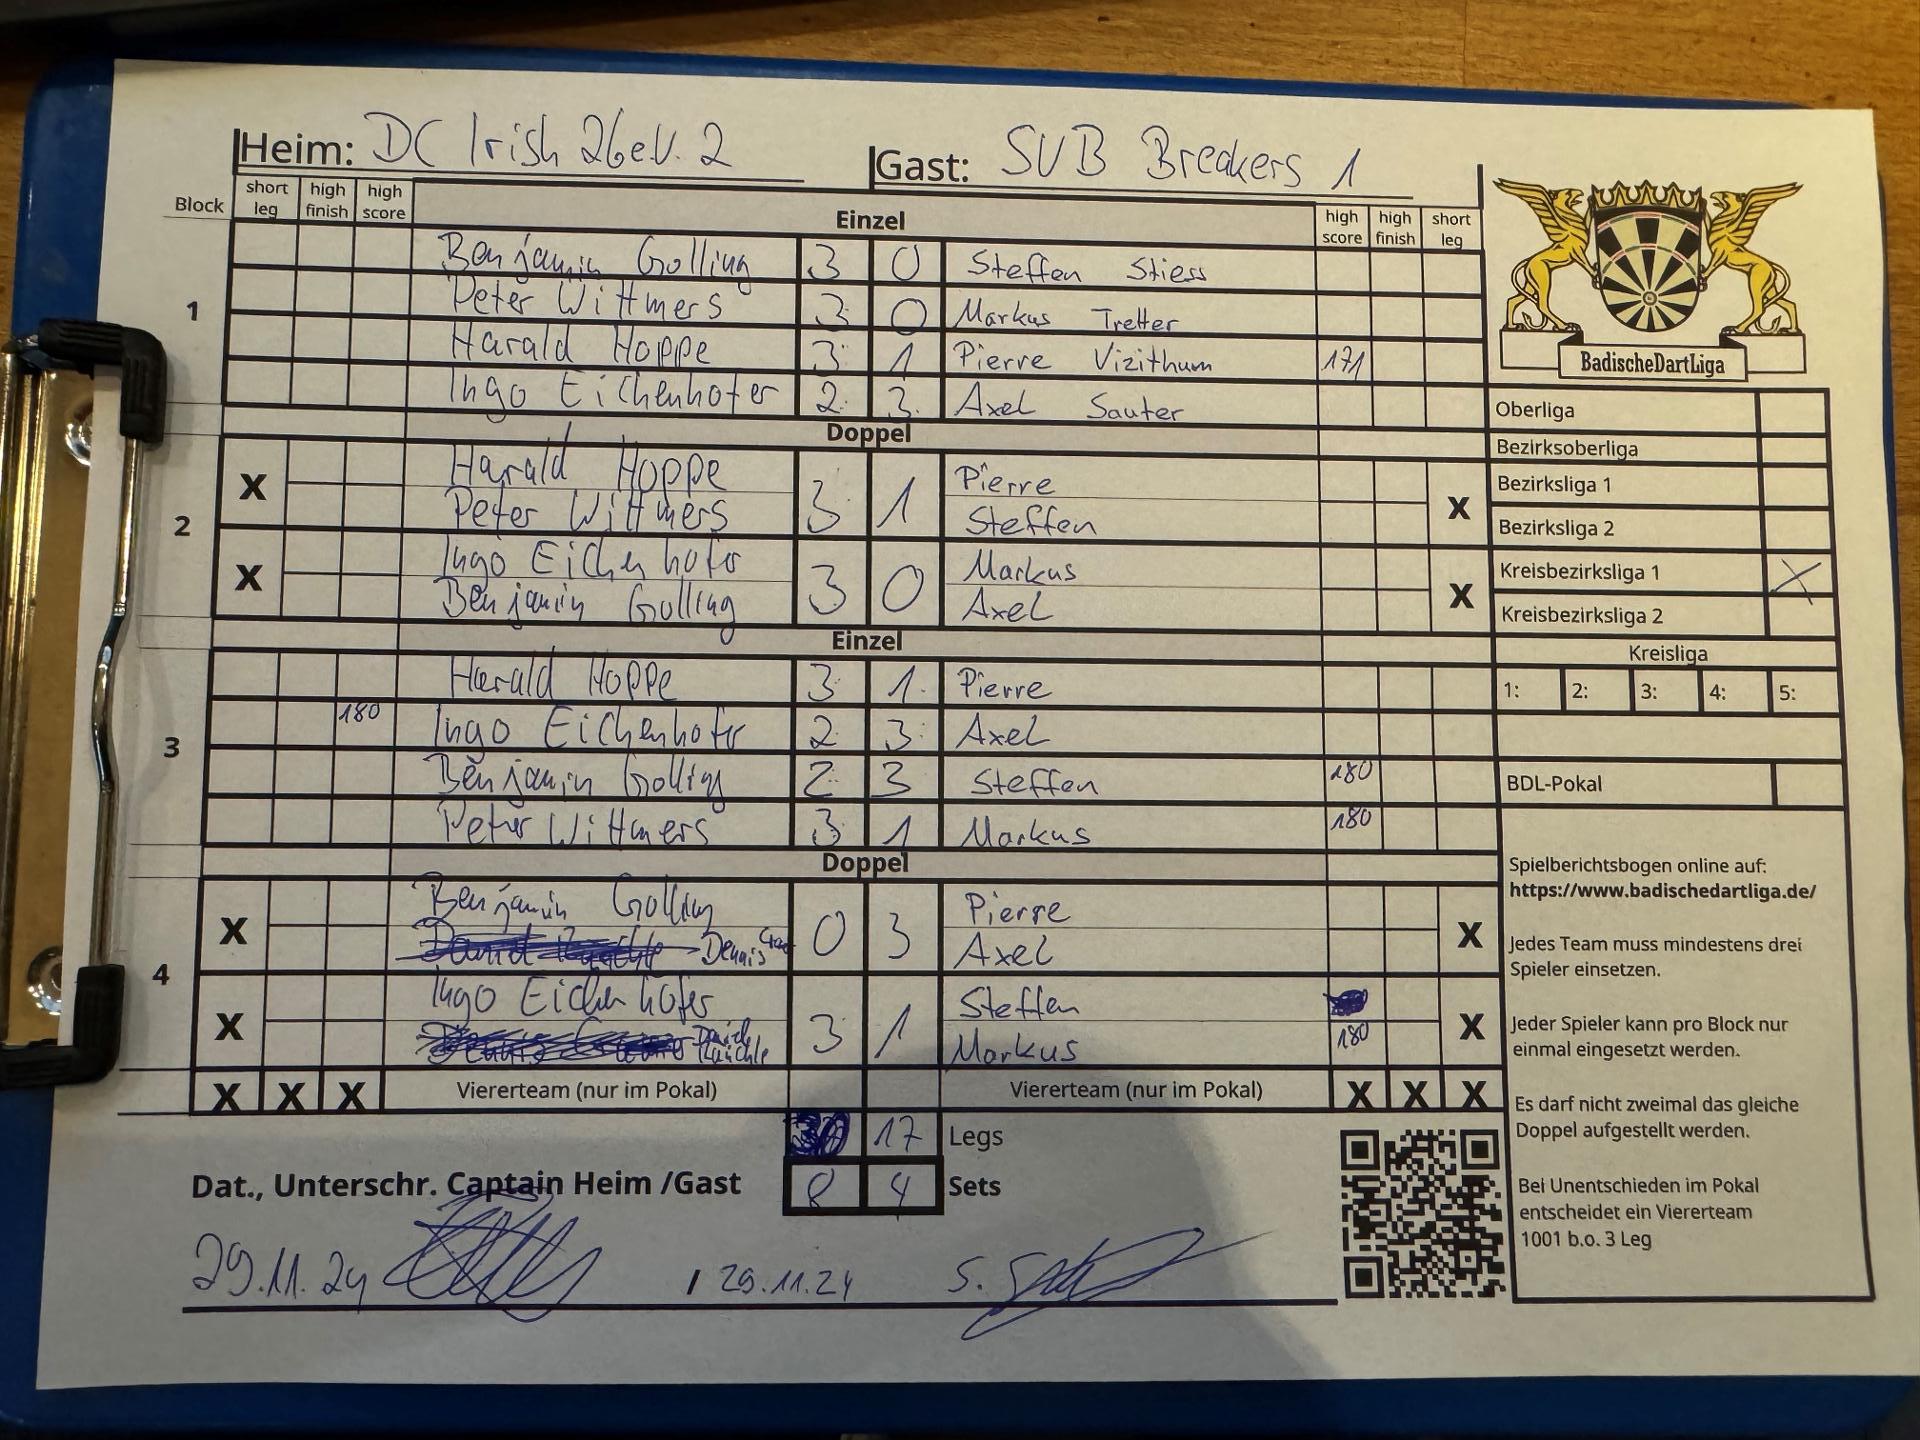 Heim: DC Irish 26 e.V. 2 Gast: SVB Breakers 1
Block short leg high finish high score Einzel high score high finish short leg
1
Benjamin Golling 3 0 Steffen Stiess
Peter Wittmers 3 0 Markus Tretter
Harald Hoppe 3 1 Pierre Vizithum 171
Ingo Eichenhofer 2 3 Axel Sauter
Doppel
2
X Harald Hoppe 3 1 Pierre X
Peter Wittmers Steffen
X Ingo Eichenhofer 3 0 Markus X
Benjamin Golling Axel
Einzel
3
Harald Hoppe 3 1 Pierre
180 Ingo Eichenhofer 2 3 Axel
Benjamin Golling 2 3 Steffen 180
Peter Wittmers 3 1 Markus 180
Doppel
4
X Benjamin Golling 0 3 Pierre X
Dennis Axel
X Ingo Eichenhofer 3 1 Steffen X
Markus 180
X X X Viererteam (nur im Pokal) Viererteam (nur im Pokal) X X X
17 Legs
Dat., Unterschr. Captain Heim /Gast 8 4 Sets
29.11.24 / 29.11.24 S.
BadischeDartLiga
Oberliga
Bezirksoberliga
Bezirksliga 1
Bezirksliga 2
Kreisbezirksliga 1 X
Kreisbezirksliga 2
Kreisliga
1: 2: 3: 4: 5:
BDL-Pokal
Spielberichtsbogen online auf:
https://www.badischedartliga.de/
Jedes Team muss mindestens drei
Spieler einsetzen.
Jeder Spieler kann pro Block nur
einmal eingesetzt werden.
Es darf nicht zweimal das gleiche
Doppel aufgestellt werden.
Bei Unentschieden im Pokal
entscheidet ein Viererteam
1001 b.o. 3 Leg